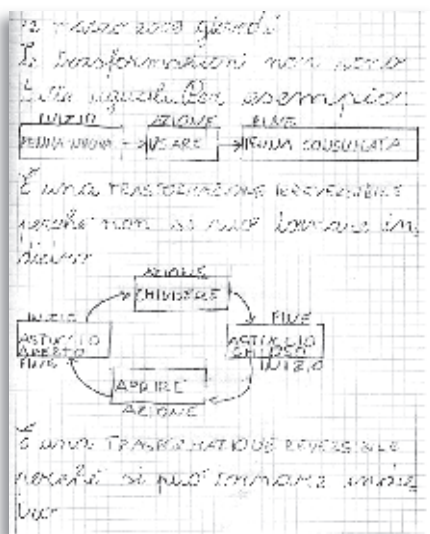 12 marzo 2009 giovedì
Le trasformazioni non sono
tutte uguali. Per esempio:
INIZIO AZIONE FINE
PENNA NUOVA → USARE → PENNA CONSUMATA
È una TRASFORMAZIONE IRREVERSIBILE
perché non si può tornare in
dietro
AZIONE
CHIUDERE
INIZIO FINE
ASTUCCIO ASTUCCIO
APERTO CHIUSO
FINE INIZIO
APRIRE
AZIONE
È una TRASFORMATIONE REVERSIBILE
perché si può tornare indie
tro